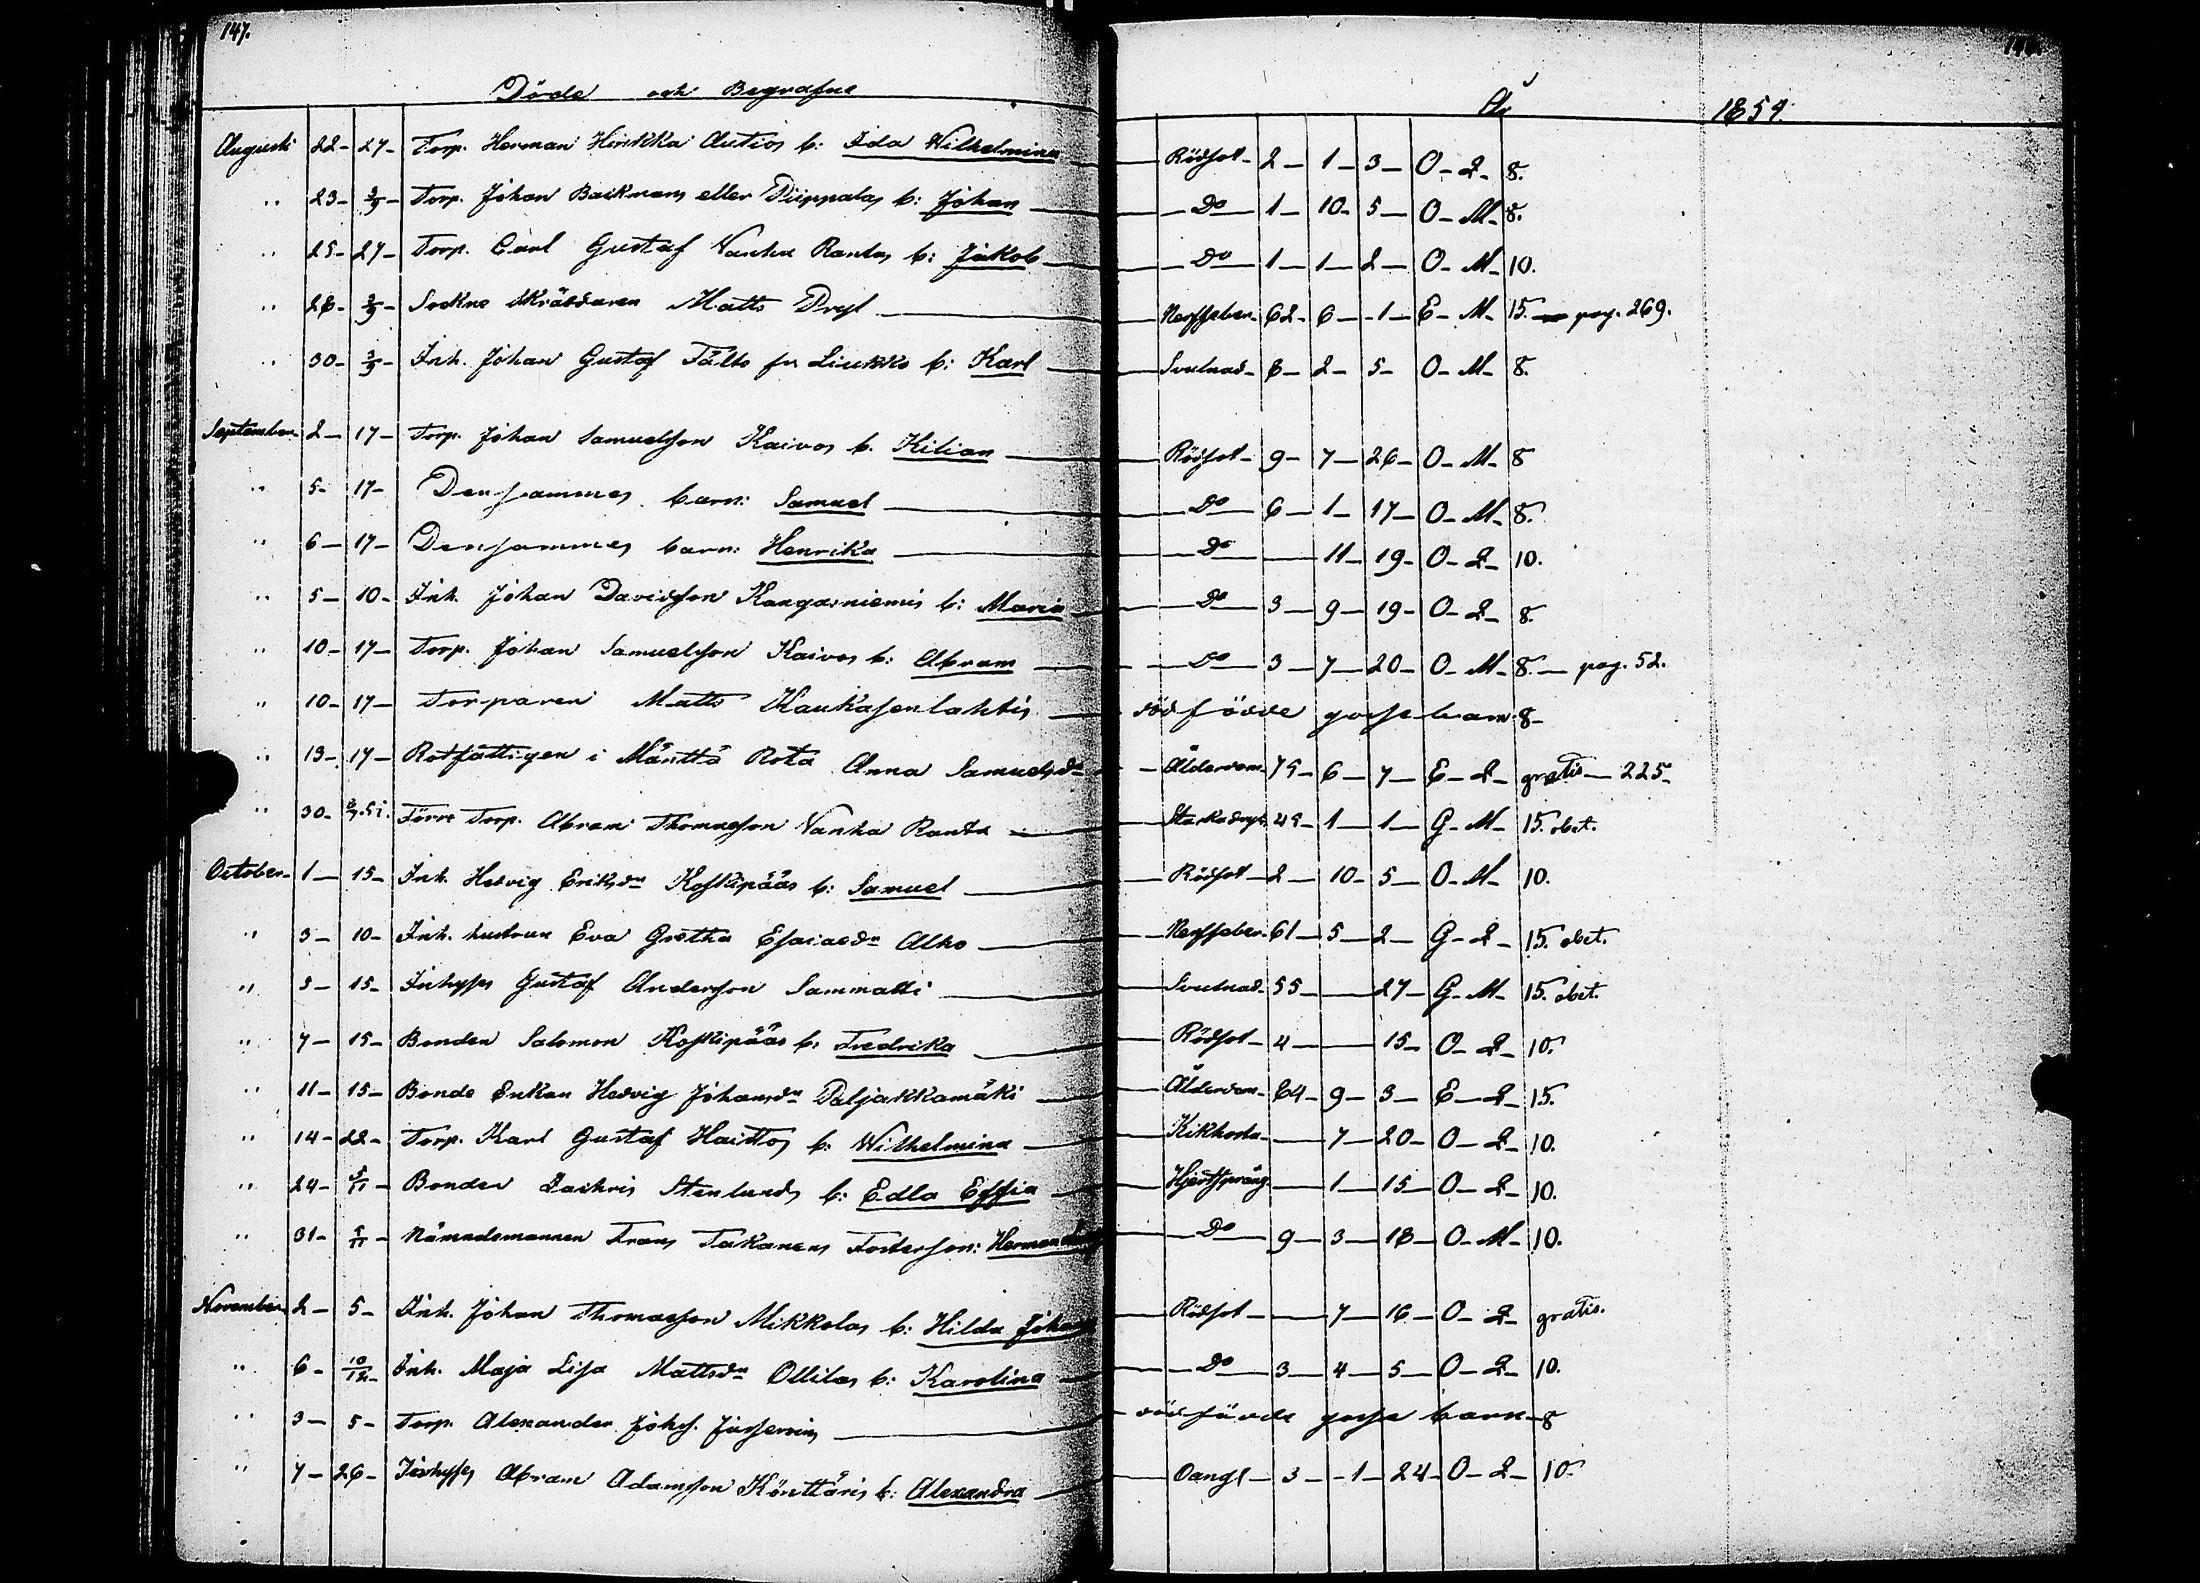 147.
Döde och Begrafne År 1854.
Augusti 22- 27- Torp. Herman Hirikka Autios b: Ida Wilhelmina — Rödsot- 2- 1- 3- O- Q- 8.
" 23- 3/9- Torp. Johan Backmans eller Piippalas b: Johan — Do 1- 10- 5- O- M- 8.
" 25- 27- Torp. Carl Gustaf Vanha Rantas b: Jakob — Do 1- 1- 2- O- M- 10.
" 26- 3/9- Sockne skräddaren Matts — 62- 6- 1- E- M- 15. pag. 269.
" 30- 3/9- Inh. Johan Gustaf Tälts fr Liukko b: Karl — Svulnad- 8- 2- 5- O- M- 8.
September 2- 17- Torp. Johan Samuelsson Kaivos b. Kilian — Rödsot- 9- 7- 26- O- M- 8
" 5- 17- Densammes barn: Samuel — Do 6- 1- 17- O- M- 8.
" 6- 17- Densammes barn: Henrika — Do — 11- 19- O- Q- 10.
" 5- 10- Inh. Johan Davidsson Kangasniemis b: Maria — Do 3- 9- 19- O- Q- 8.
" 10- 17- Torp. Johan Samuelsson Kaivos b: Abram — Do 3- 7- 20- O- M- 8. — pag. 52.
" 10- 17- Torparen Matts Kaukasenlahtis — dödfödde gosse barn 8-
" 13- 17- Rotfattigen i Mänttä Rota Anna Samuelsdr — Ålderdom- 75- 6- 7- E- Q- gratis — 225-
" 30- Förre Torp. Abram Thomasson Vanha Ranta — 49- 1- 1- G- M- 15. obet.
October 1- 15- Inh. Hedvig Eriksdr Koskipääs b: Samuel — Rödsot- 2- 10- 5- O- M- 10.
" 3- 10- Inh. hustrun Eva Gretha Esaiaedr Alho — 61- 5- 2- G- Q- 15. obet.
" 5- 15- Inhyses Gustaf Andersson Sammatti — Svulnad- 55- — 27- G- M- 15. obet.
" 7- 15- Bonden Salomon Koskipääs b: Fredrika — Rödsot- 4- — 15- O- Q- 10.
" 11- 15- Bonde Enkan Hedvig Johansdr Paljakkamäki — Ålderdom- 64- 9- 3- E- Q- 15.
" 14- 22- Torp. Karl Gustaf Haittos b: Wilhelmina — Kikhosta- — 7- 20- O- Q- 10.
" 24- 5/11- Bonden Zachris Stenlunds b: Edla Effia — Hjertsprång — 1- 15- O- Q- 10.
" 31- 5/11- Nämndemannen Frans Takanens Fosterson: Herman — Do 9- 3- 18- O- M- 10.
November 2- 5- Inh. Johan Thomasson Mikkolas b: Hilda — Rödsot- — 7- 16- O- Q- gratis.
" 6- 10/12- Inh. Maja Lisa Mattsdr Ollilas b: Karolina — Do 3- 4- 5- O- Q- 10.
" 3- 5- Torp. Alexander Johss. — dödfödde gosse barn- 8
" 7- 26- Inhyses Abram Adamsson Könttäris b: Alexandra — 3- 1- 24- O- Q- 10.